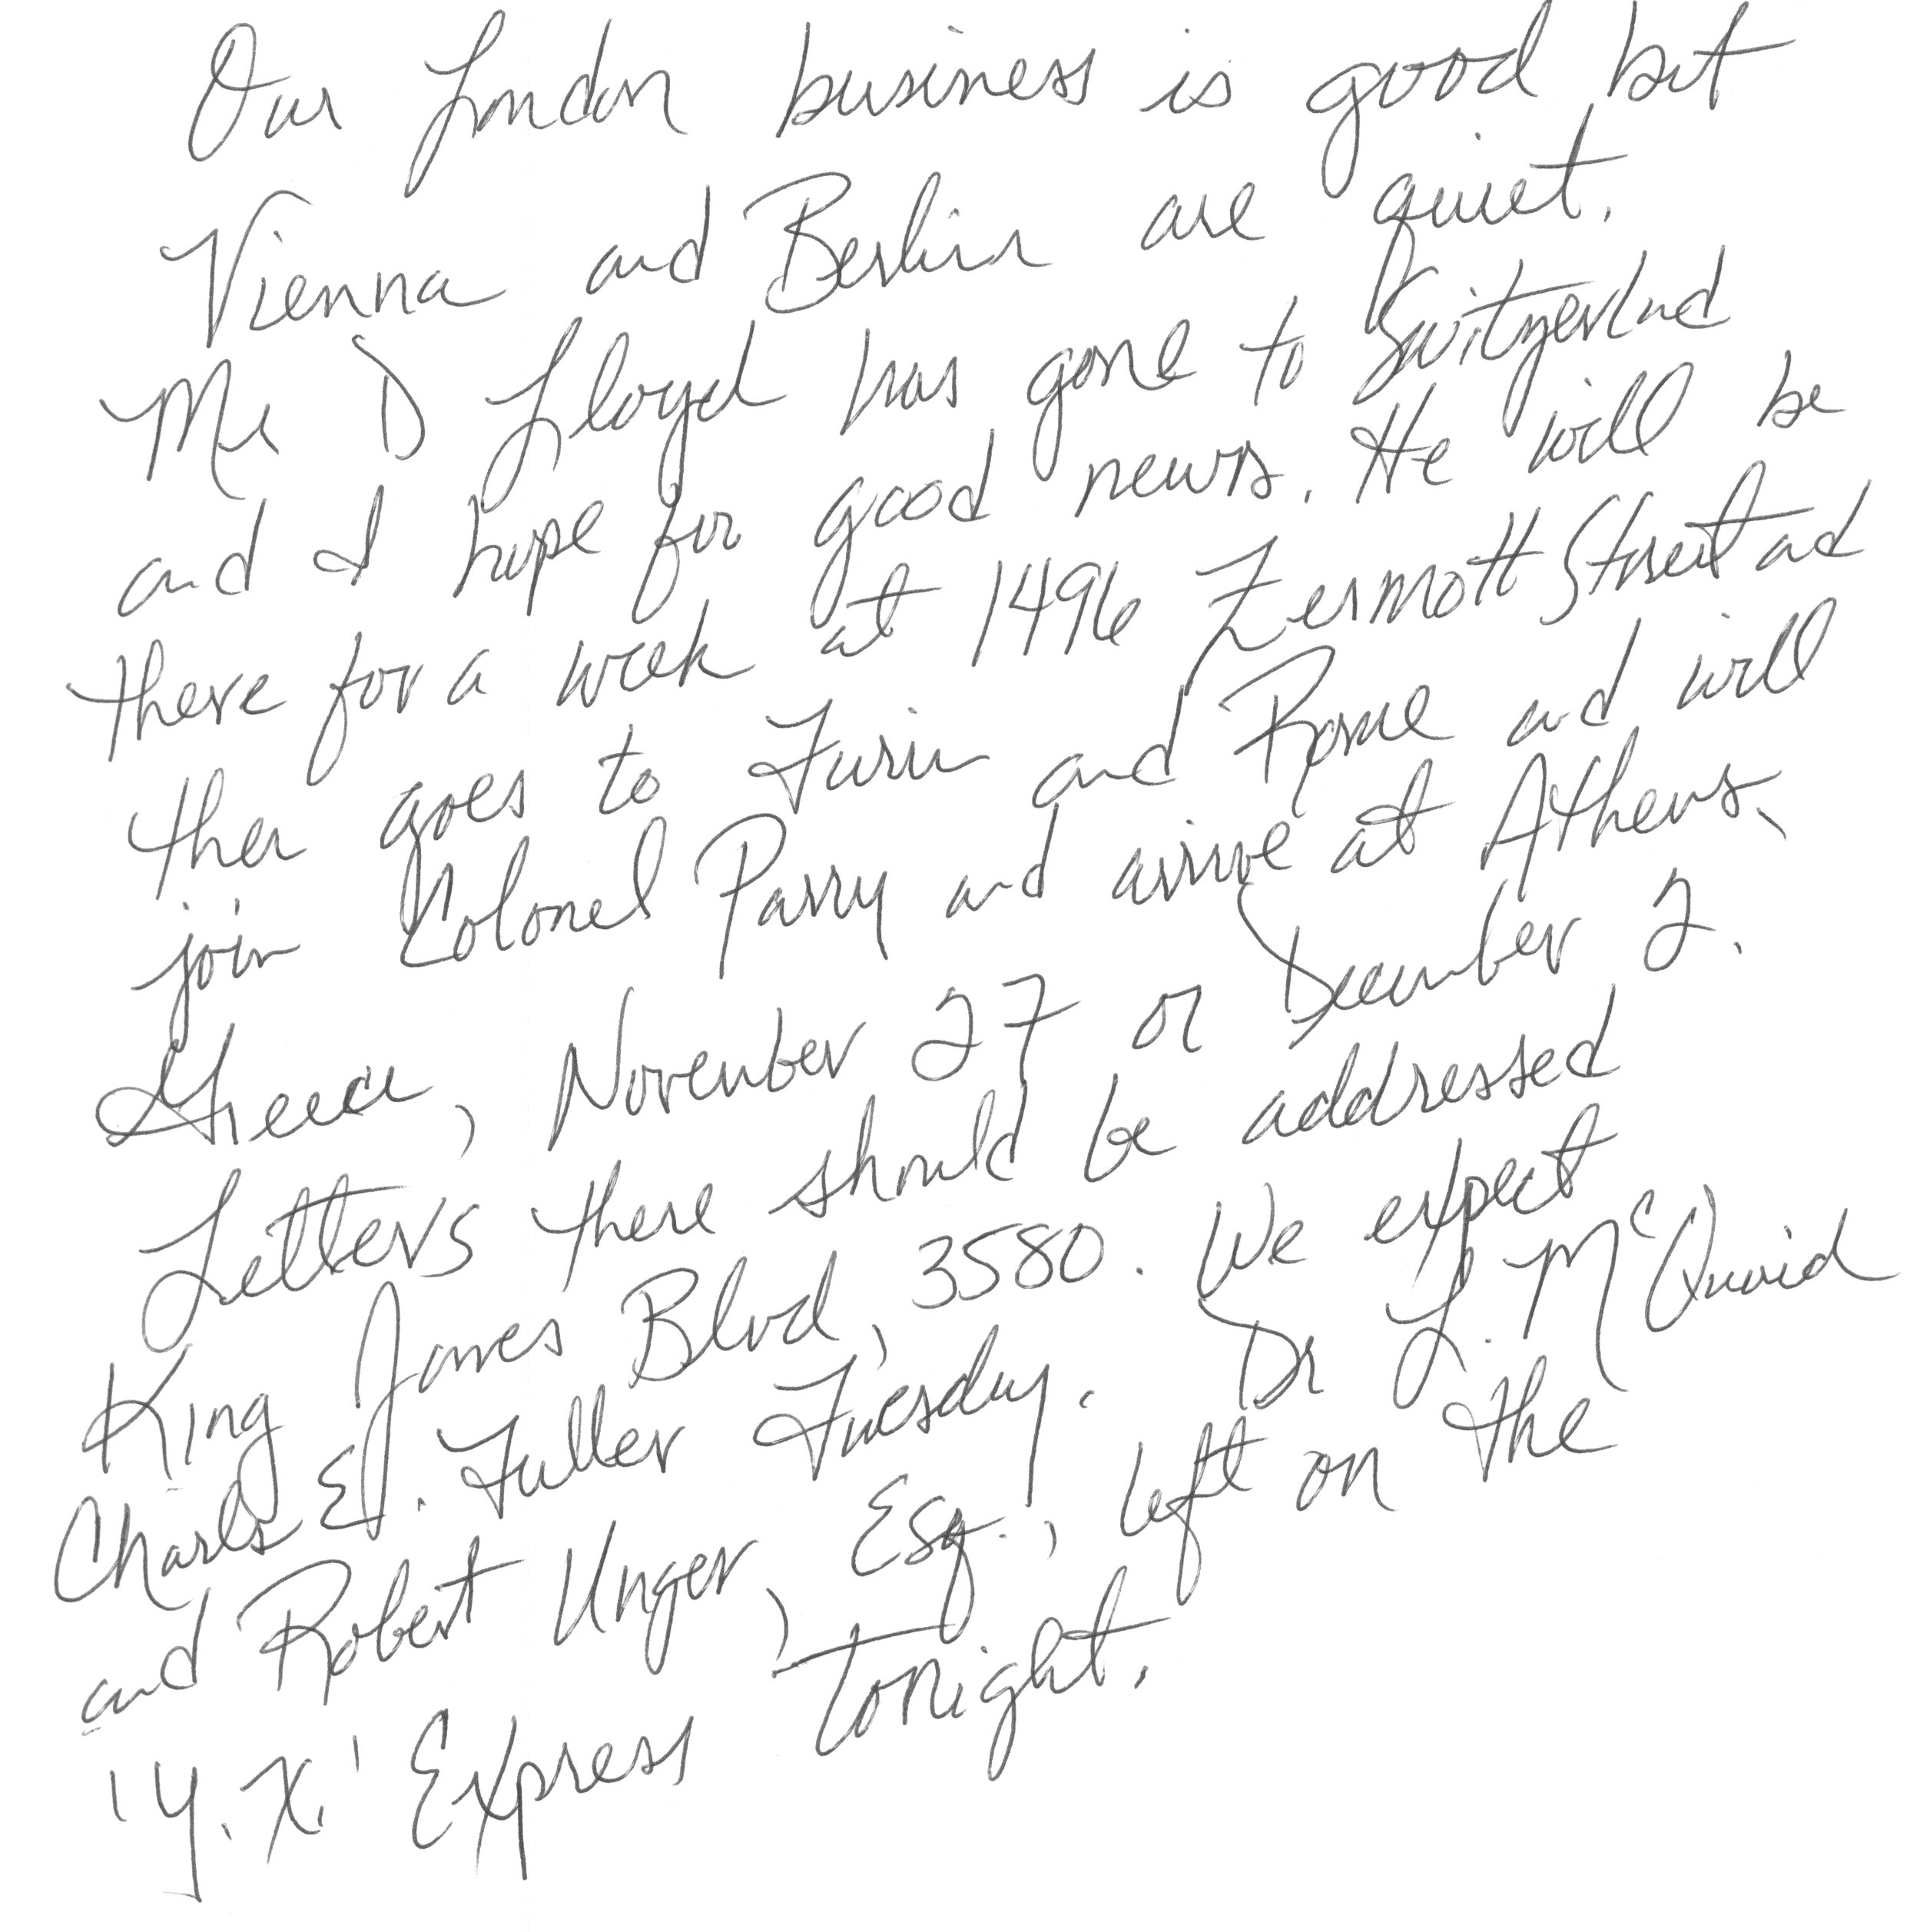 Our London business is good but
Vienna and Berlin are quiet.
Mr D Lloyd has gone to Switzerland
and I hope for good news. He will be
there for a week at 1496 Zermott Street and
then goes to Turin and Rome and will
join Colonel Parry and arrive at Athens,
Greece, November 27 or December 2.
Letters there should be addressed
King James Blvd, 3580. We expect
Charles E. Fuller Tuesday. Dr L. McQuaid
and Robert Unger, Esq., left on the
'Y.X.' Express tonight.